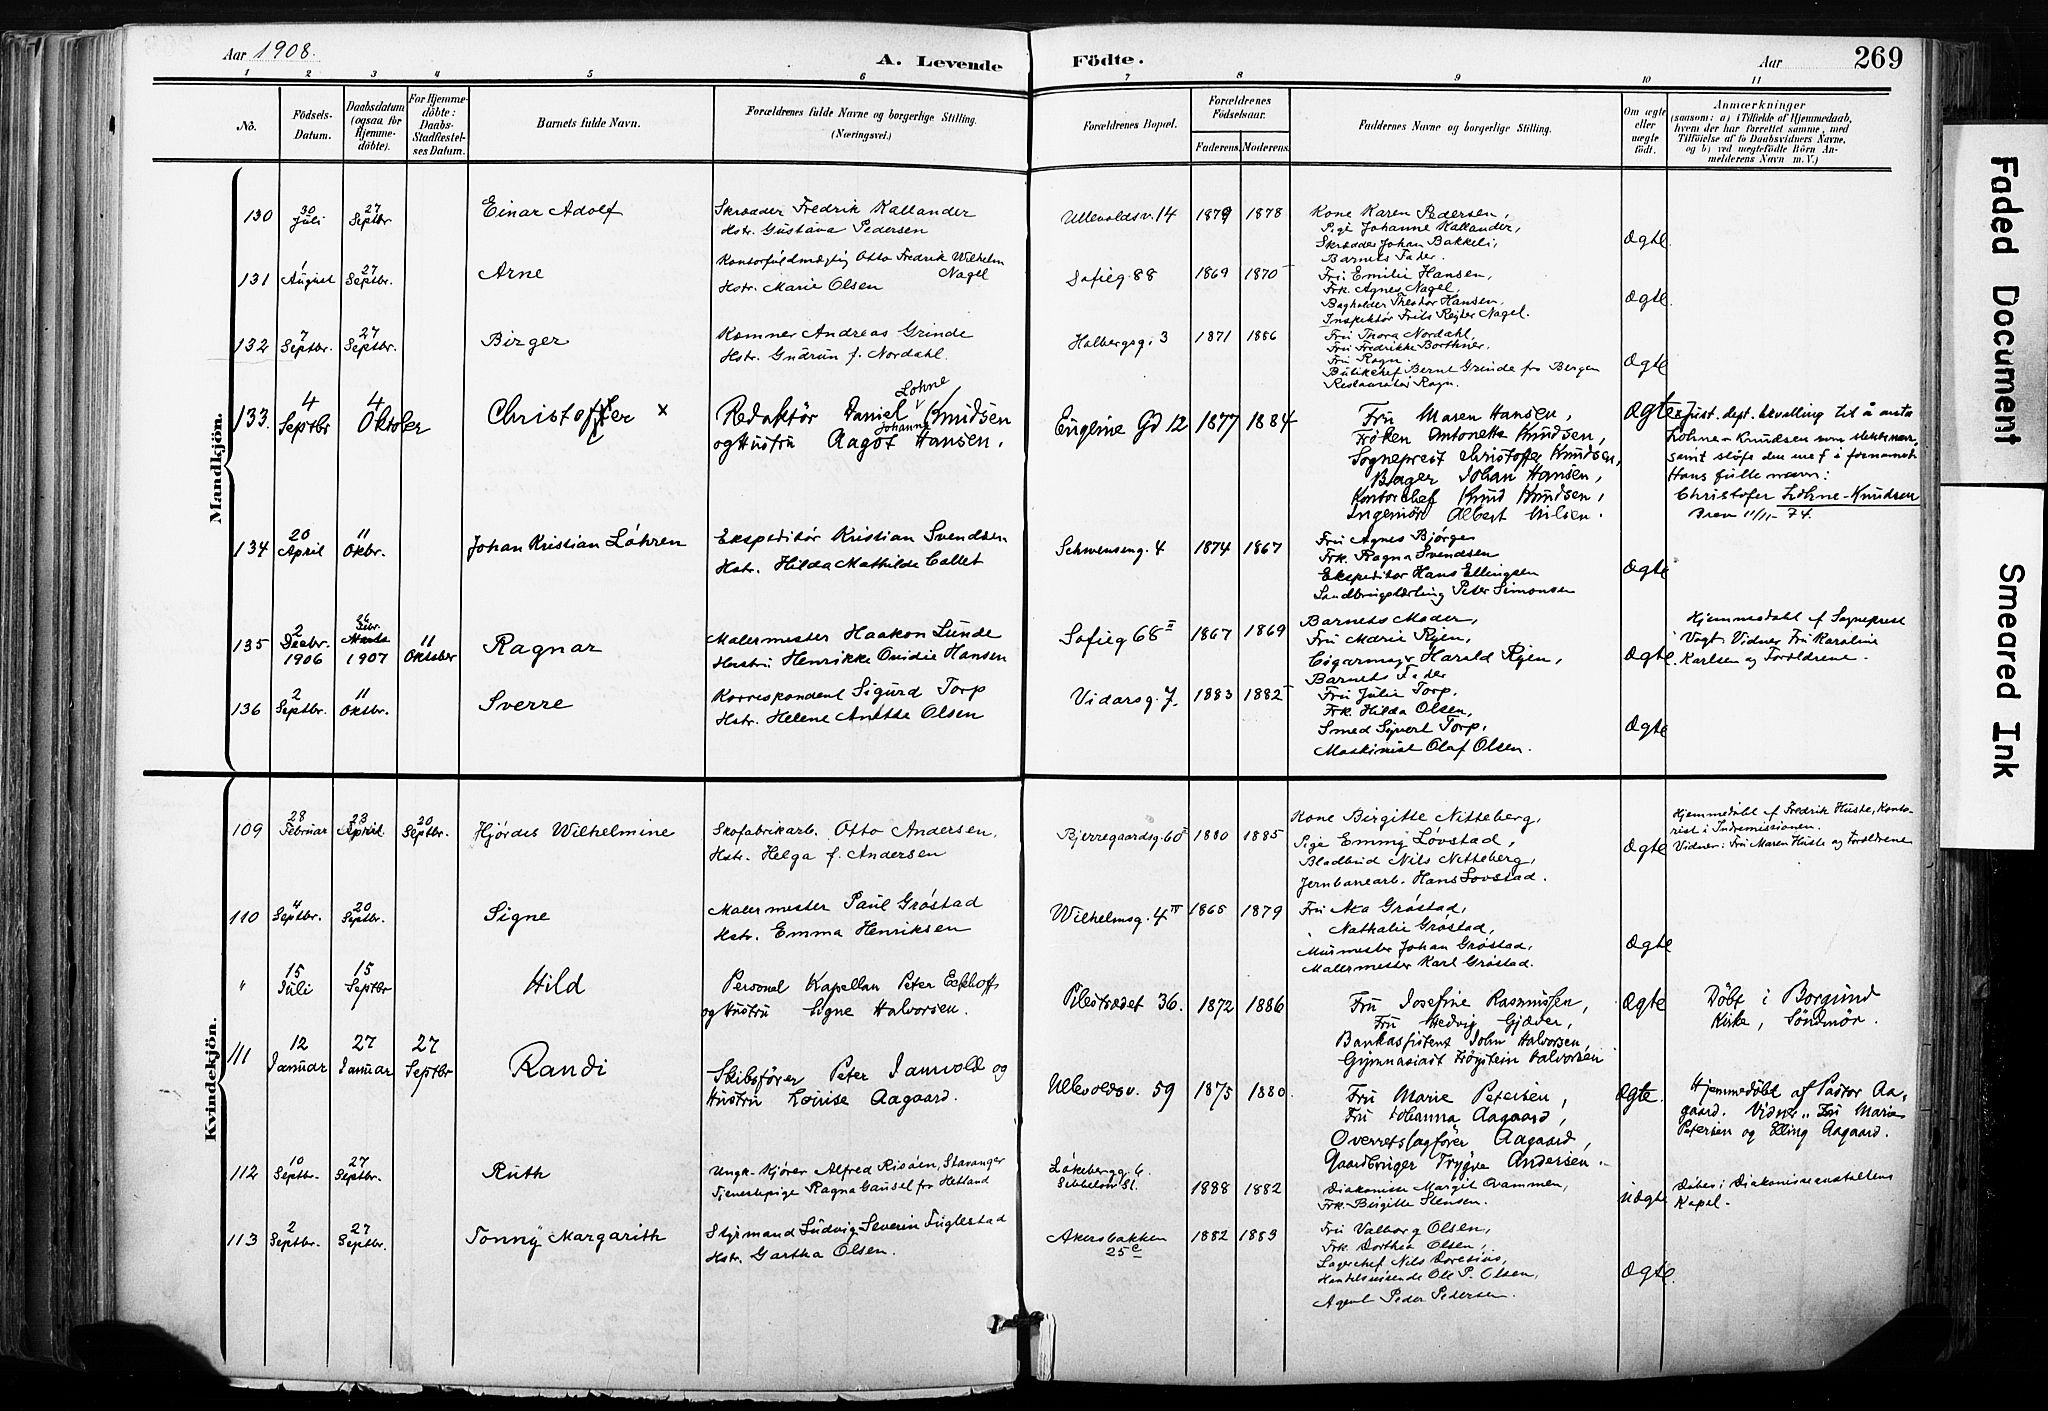 Aar 1908.
A. Levende Födte.
Aar
269
1 2 3 4 5 6 7 8 9 10 11
No.
Födsels-
Datum.
Daabsdatum
(ogsaa for
Hjemme-
döbte).
For Hjemme-
döbte:
Daabs-
Stadfæstel-
ses Datum.
Barnets fulde Navn.
Forældrenes fulde Navne og borgerlige Stilling.
(Næringsvei.)
Forældrenes Bopæl.
Forældrenes
Födselsaar.
Faderens. Moderens.
Faddernes Navne og borgerlige Stilling.
Om ægte
eller
uægte
födt.
Anmærkninger
(saasom: a) i Tilfælde af Hjemmedaab,
hvem der har forrettet samme, med
Tilföielse af to Daabsvidners Navne,
og b) ved uægtefödte Börn An-
melderens Navn m. V.)
Mandkjön.
130 30 Juli 27 Septbr Einar Adolf Skrædder Fredrik Kallander
Hstr. Gustava Pedersen
Ullevoldsv. 14 1879 1878 Kone Karen Pedersen,
Pige Johanne Kallander,
Skrædder Johan Bakkeli,
Barnets Fader.
Ægte.
131 1 August 27 Septbr. Arne Kontorfuldmægtig Otto Fredrik Wilhelm
Nagel
Hstr. Marie Olsen
Sofieg. 88 1869 1870 Fru Emilie Hansen,
Frk. Agnes Nagel,
Bogholder Theodor Hansen,
Inspektör Frits Rejter Nagel.
Ægte.
132 7 Septbr. 27 Septbr. Birger Kemner Andreas Grinde
Hstr. Gudrun f. Nordahl.
Holbergsg. 3 1871 1886 Fru Thora Nordahl,
Fru Fredrikke Borthner.
Fru Ragn.
Butikchef Bernt Grinde fra Bergen
Restauratör Ragn.
Ægte
133. 4 Septbr 4 Oktober Christoffer x Redaktör Daniel Lohne Knudsen
og Hustru Aagot Johanne Hansen.
Eugenie Gd 12 1877 1884 Fru Maren Hansen,
Fröken Antonette Knudsen,
Sogneprest Christoffer Knudsen,
Bager Johan Hansen,
Kontorchef Knud Knudsen,
Ingeniör Albert Nilsen.
Ægte
x Just. dept. bevilling til å anta
Lohne-Knudsen som slektsnavn,
samt sløife den ene f i fornavnet
Hans fulle navn:
Christofer Lohne-Knudsen
Brev 11/11-74.
134 20 April 11 Oktbr. Johan Kristian Löhren Ekspeditör Kristian Svendsen
Hstr. Hilda Mathilde Callet
Schwenseng. 4 1874 1867 Fru Agnes Bjørge
Frk. Ragna Svendsen
Ekspeditör Hans Ellingsen
Landbrugslærling Peter Simonsen
Ægte
135 2 Decbr. 1906 Marts 1907 11 Oktober Ragnar Malermester Haakon Lunde
Hustru Henrikke Ovidie Hansen
Sofieg 68 II 1867 1869 Barnets Moder,
Fru Marie Ryen,
Cigarmager Harald Ryen,
Barnets Fader
Ægte
Hjemmedøbt af Sogneprest
Vogt. Vidner Fru Karoline
Karlsen og Forældrene.
136 2 Septbr. 11 Oktbr. Sverre Korrespondent Sigurd Torp
Hstr. Helene Anette Olsen
Vidarsg. 7 1883 1882 Fru Julie Torp.
Frk. Hilda Olsen,
Smed Syvert Torp,
Maskinist Olaf Olsen.
Ægte
Kvindekjön.
109 28 Februar 23 April 20 Septbr. Hjördis Wilhelmine Skofabrikarb. Otto Andersen,
Hstr. Helga f. Andersen
Bjerregaardsg. 60 1880 1885 Kone Birgitte Nitteberg,
Pige Emmy Lövstad,
Bladbud Nils Nitteberg,
Jernbanearb. Hans Lovstad.
Ægte
Hjemmedøbt af Fredrik Huste, Konto-
rist i Indremissionen.
Vidner: Fru Maren Huste og Forældrene
110 4 Septbr. 20 Septbr. Signe Malermester Paul Gröstad
Hstr. Emma Henriksen
Wilhelmsg. 4 II 1865 1879 Fru Aea Gröstad,
Nathalie Gröstad,
Murmester Johan Gröstad,
Malermester Karl Gröstad.
Ægte
" 15 Juli 15 Septbr Hild Personel Kapellan Peter Eckhoff
og Hustru Signe Halvorsen.
Pilestrædet 36. 1872 1886 Fru Josefine Rasmussen,
Fru Hedvig Gjæver,
Bankassistent John Halvorsen,
Gymnasiast Frøystein Halvorsen
Ægte
Döbt i Borgund
Kirke, Söndmör.
111 12 Januar 27 Januar 27 Septbr Randi Skibsförer Peter Jamvold og
Hustru Louise Aagaard.
Ullevoldsv. 59 1875 1880. Fru Marie Petersen,
Fru Johanna Aagaard,
Overretssagförer Aagaard,
Gaardbruger Trygve Andersen.
Ægte.
Hjemmedöbt af Pastor Aa-
gaard. Vidner: Fru Marie
Petersen og Elling Aagaard.
112 10 Septbr. 27 Septbr. Ruth Ungk. Kjörer Alfred Risøen, Stavanger
Tjenestepige Ragna Gausel fra Hetland
Løkebergg. 6.
1888 1882 Diakonisse Margit Ovammen,
Frk. Birgitte Stensen.
Uægte
Döbt i Diakonisseanstaltens
Kapel.
113 2 Septbr. 27 Septbr. Tonny Margarith Styrmand Ludvig Severin Fuglestad
Hstr. Gartha Olsen.
Akersbakken
25 c
1882 1883 Fru Valborg Olsen,
Frk. Dorthea Olsen,
Lagerchef Nils Doresius,
Handelsreisende Ole P. Olsen,
Agent Peder Pedersen.
Ægte.
Faded Document
Smeared Ink